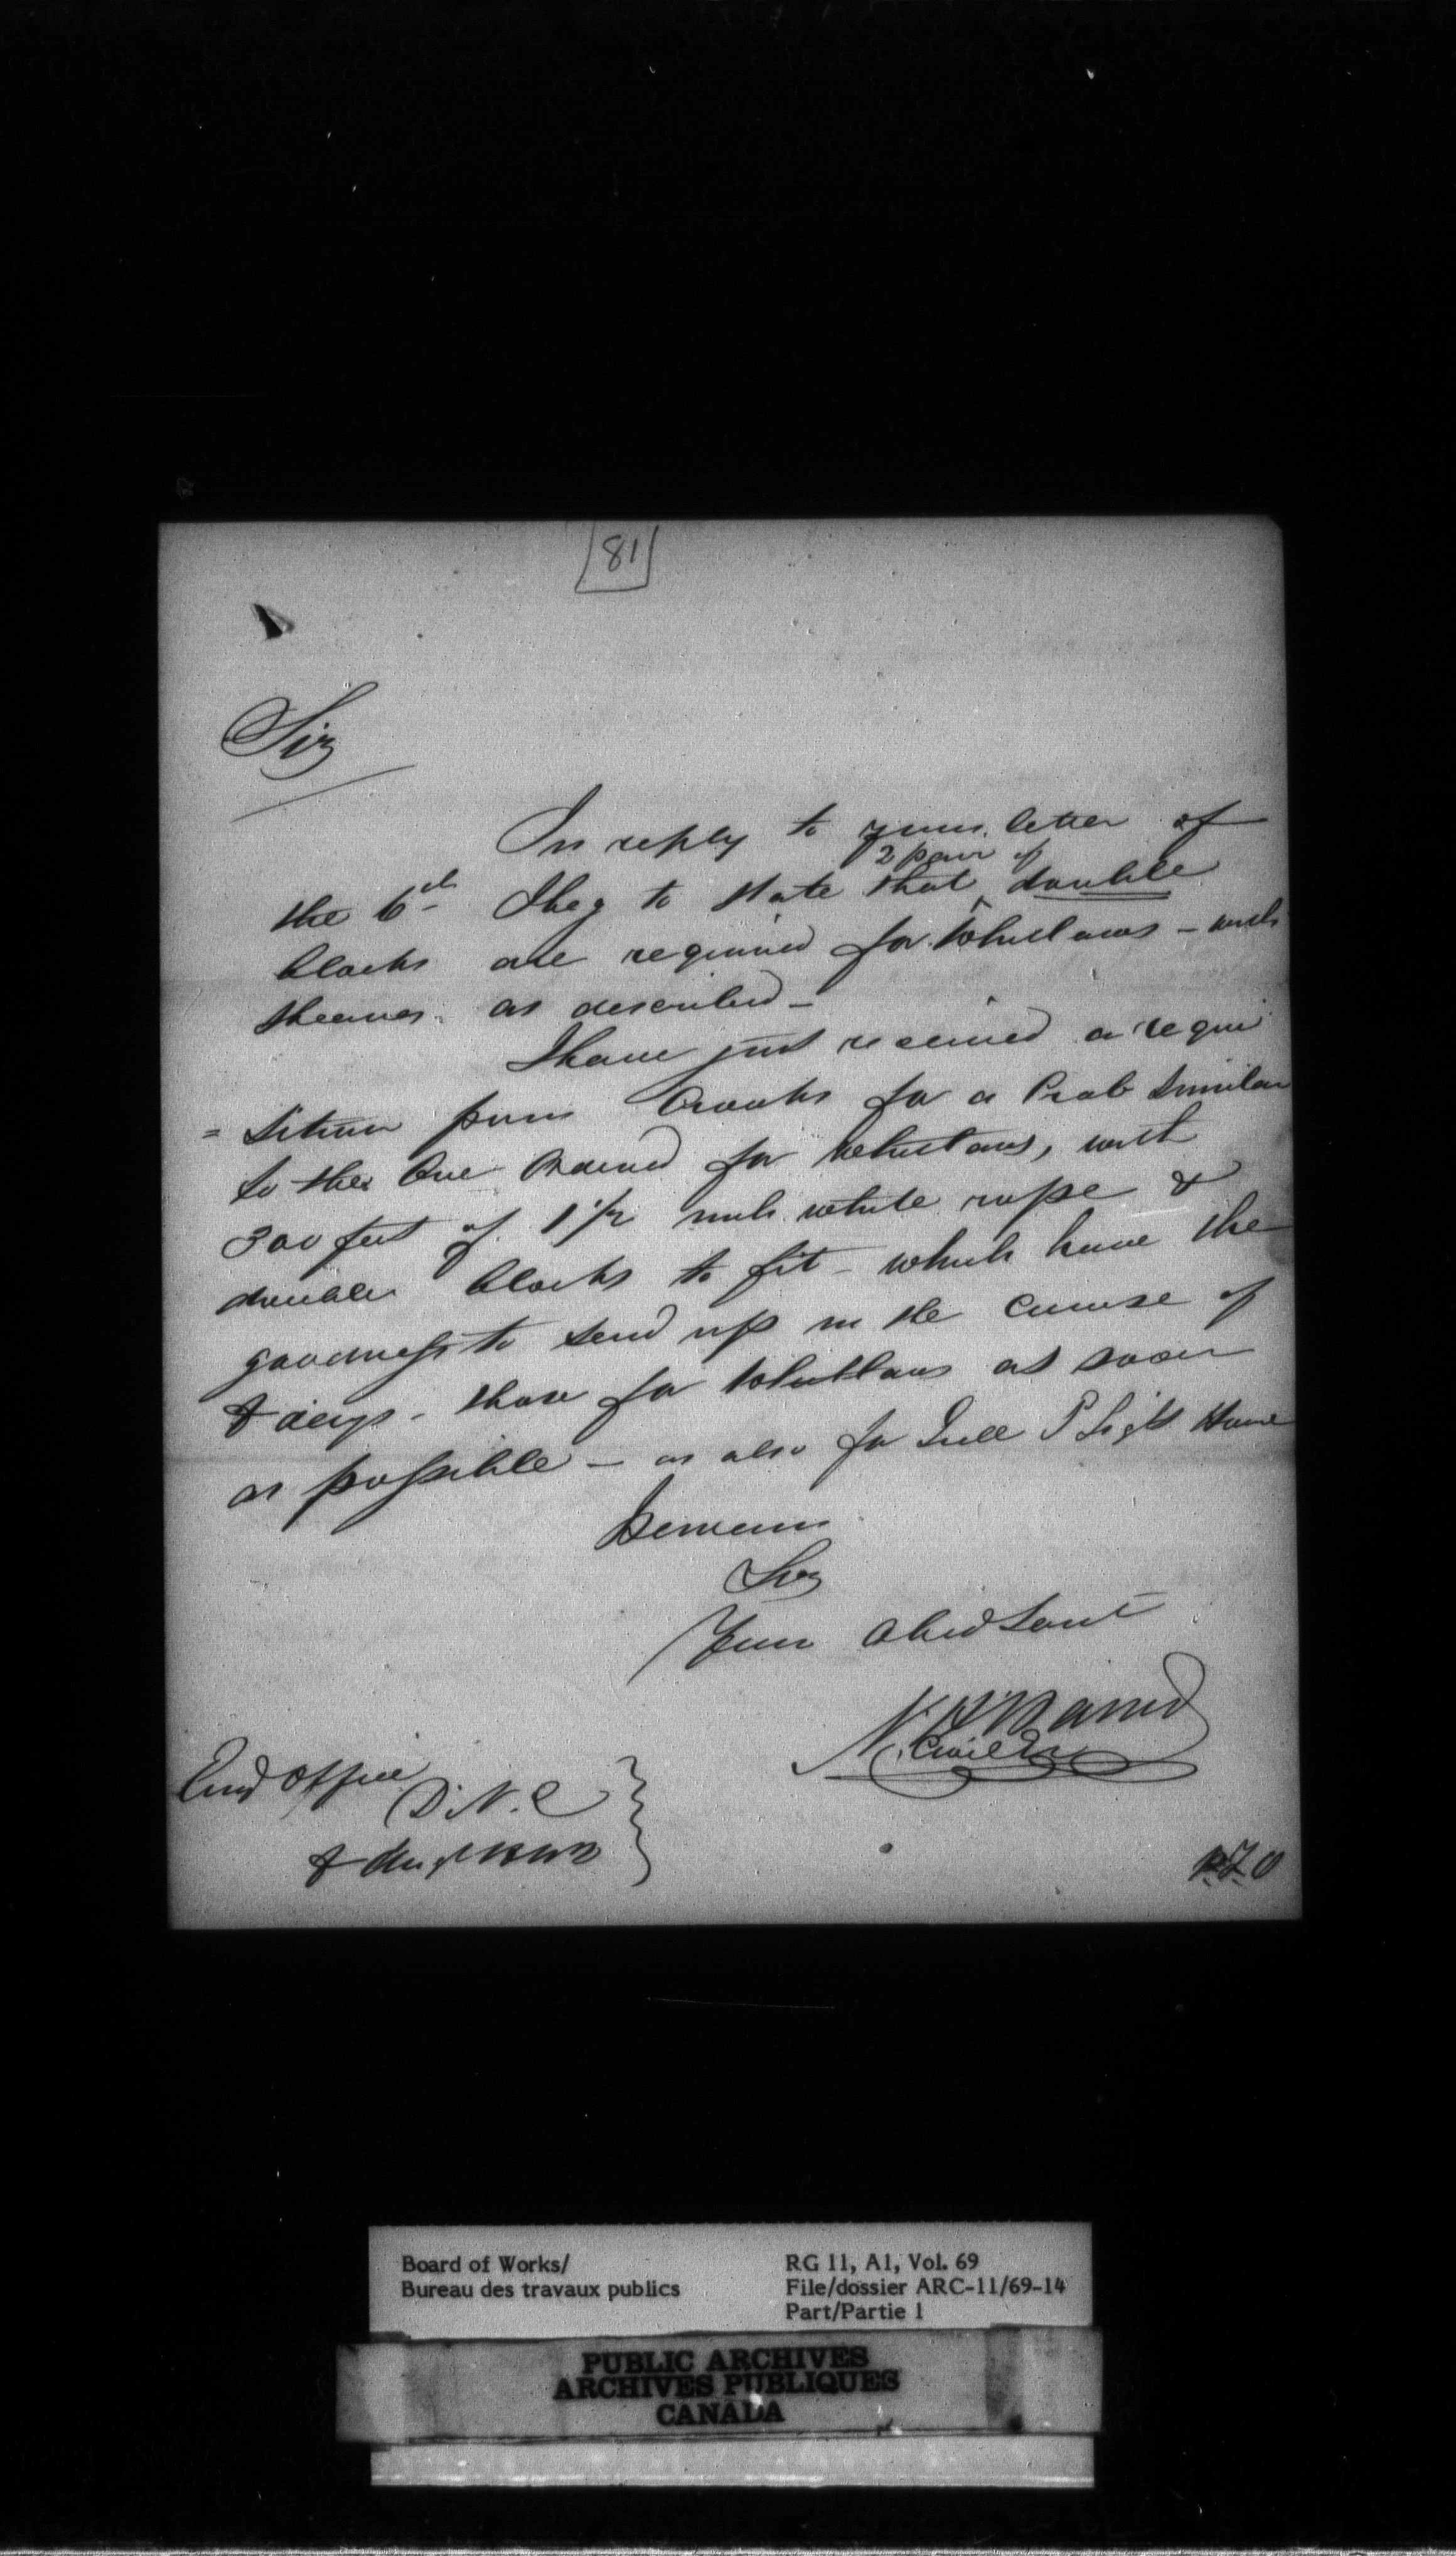 81
Sir
In reply to your letter of
2 pair of
the 6th I beg to state that double
blocks are required for Whitlaws - with
sheaves as described -
I have just received a requi
= sition from Crooks for a Crab similar
to the One Ordered for Whitlaws, with
300 feet of 1 1/2 inch white rope &
double blocks to fit - which have the
goodness to send up in the course of
days - those for Whitlaws as soon
as possible - as also for Light House
Remain
Sir
Your Obed Servt
N. H. Baird
Civil En
Eng Office
270
Board of Works/
Bureau des travaux publics
RG 11, A1, Vol. 69
File/dossier ARC-11/69-14
Part/Partie 1
PUBLIC ARCHIVES
ARCHIVES PUBLIQUES
CANADA